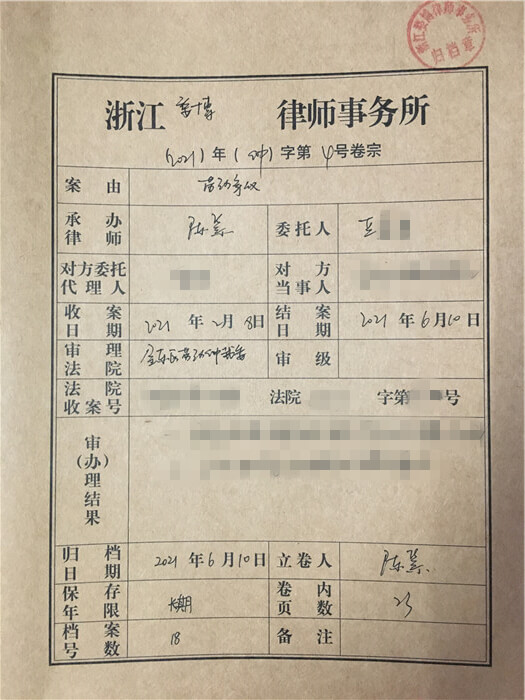 归档章
浙江 婺博 律师事务所
(2021) 年 ( 仲 ) 字第 4 号卷宗
案由 劳动争议
承办律师 陈 委托人 王
对方委托代理人 对方当事人
收案日期 2021 年 2月 8日 结案日期 2021 年 6月10日
审理法院 金东区劳动仲裁委 审级
法院收案号 法院 字第 号
审(办)理结果
归档日期 2021 年 6月10日 立卷人 陈
保存年限 长期 卷内页数 23
档案号数 18 备注